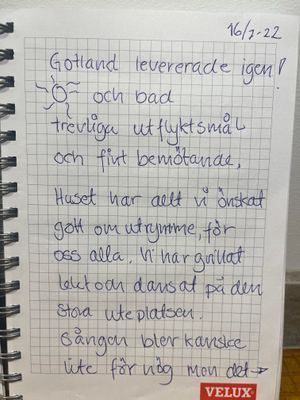 16/7-22
Gotland levererade igen!
och bad
trevliga utflyktsmål
och fint bemötande,
Huset har allt vi önskat
gott om utrymme, för
oss alla. Vi har grillat
lekt och dansat på den
stora uteplatsen.
Sången blev kanske
lite för hög men det →
VELUX